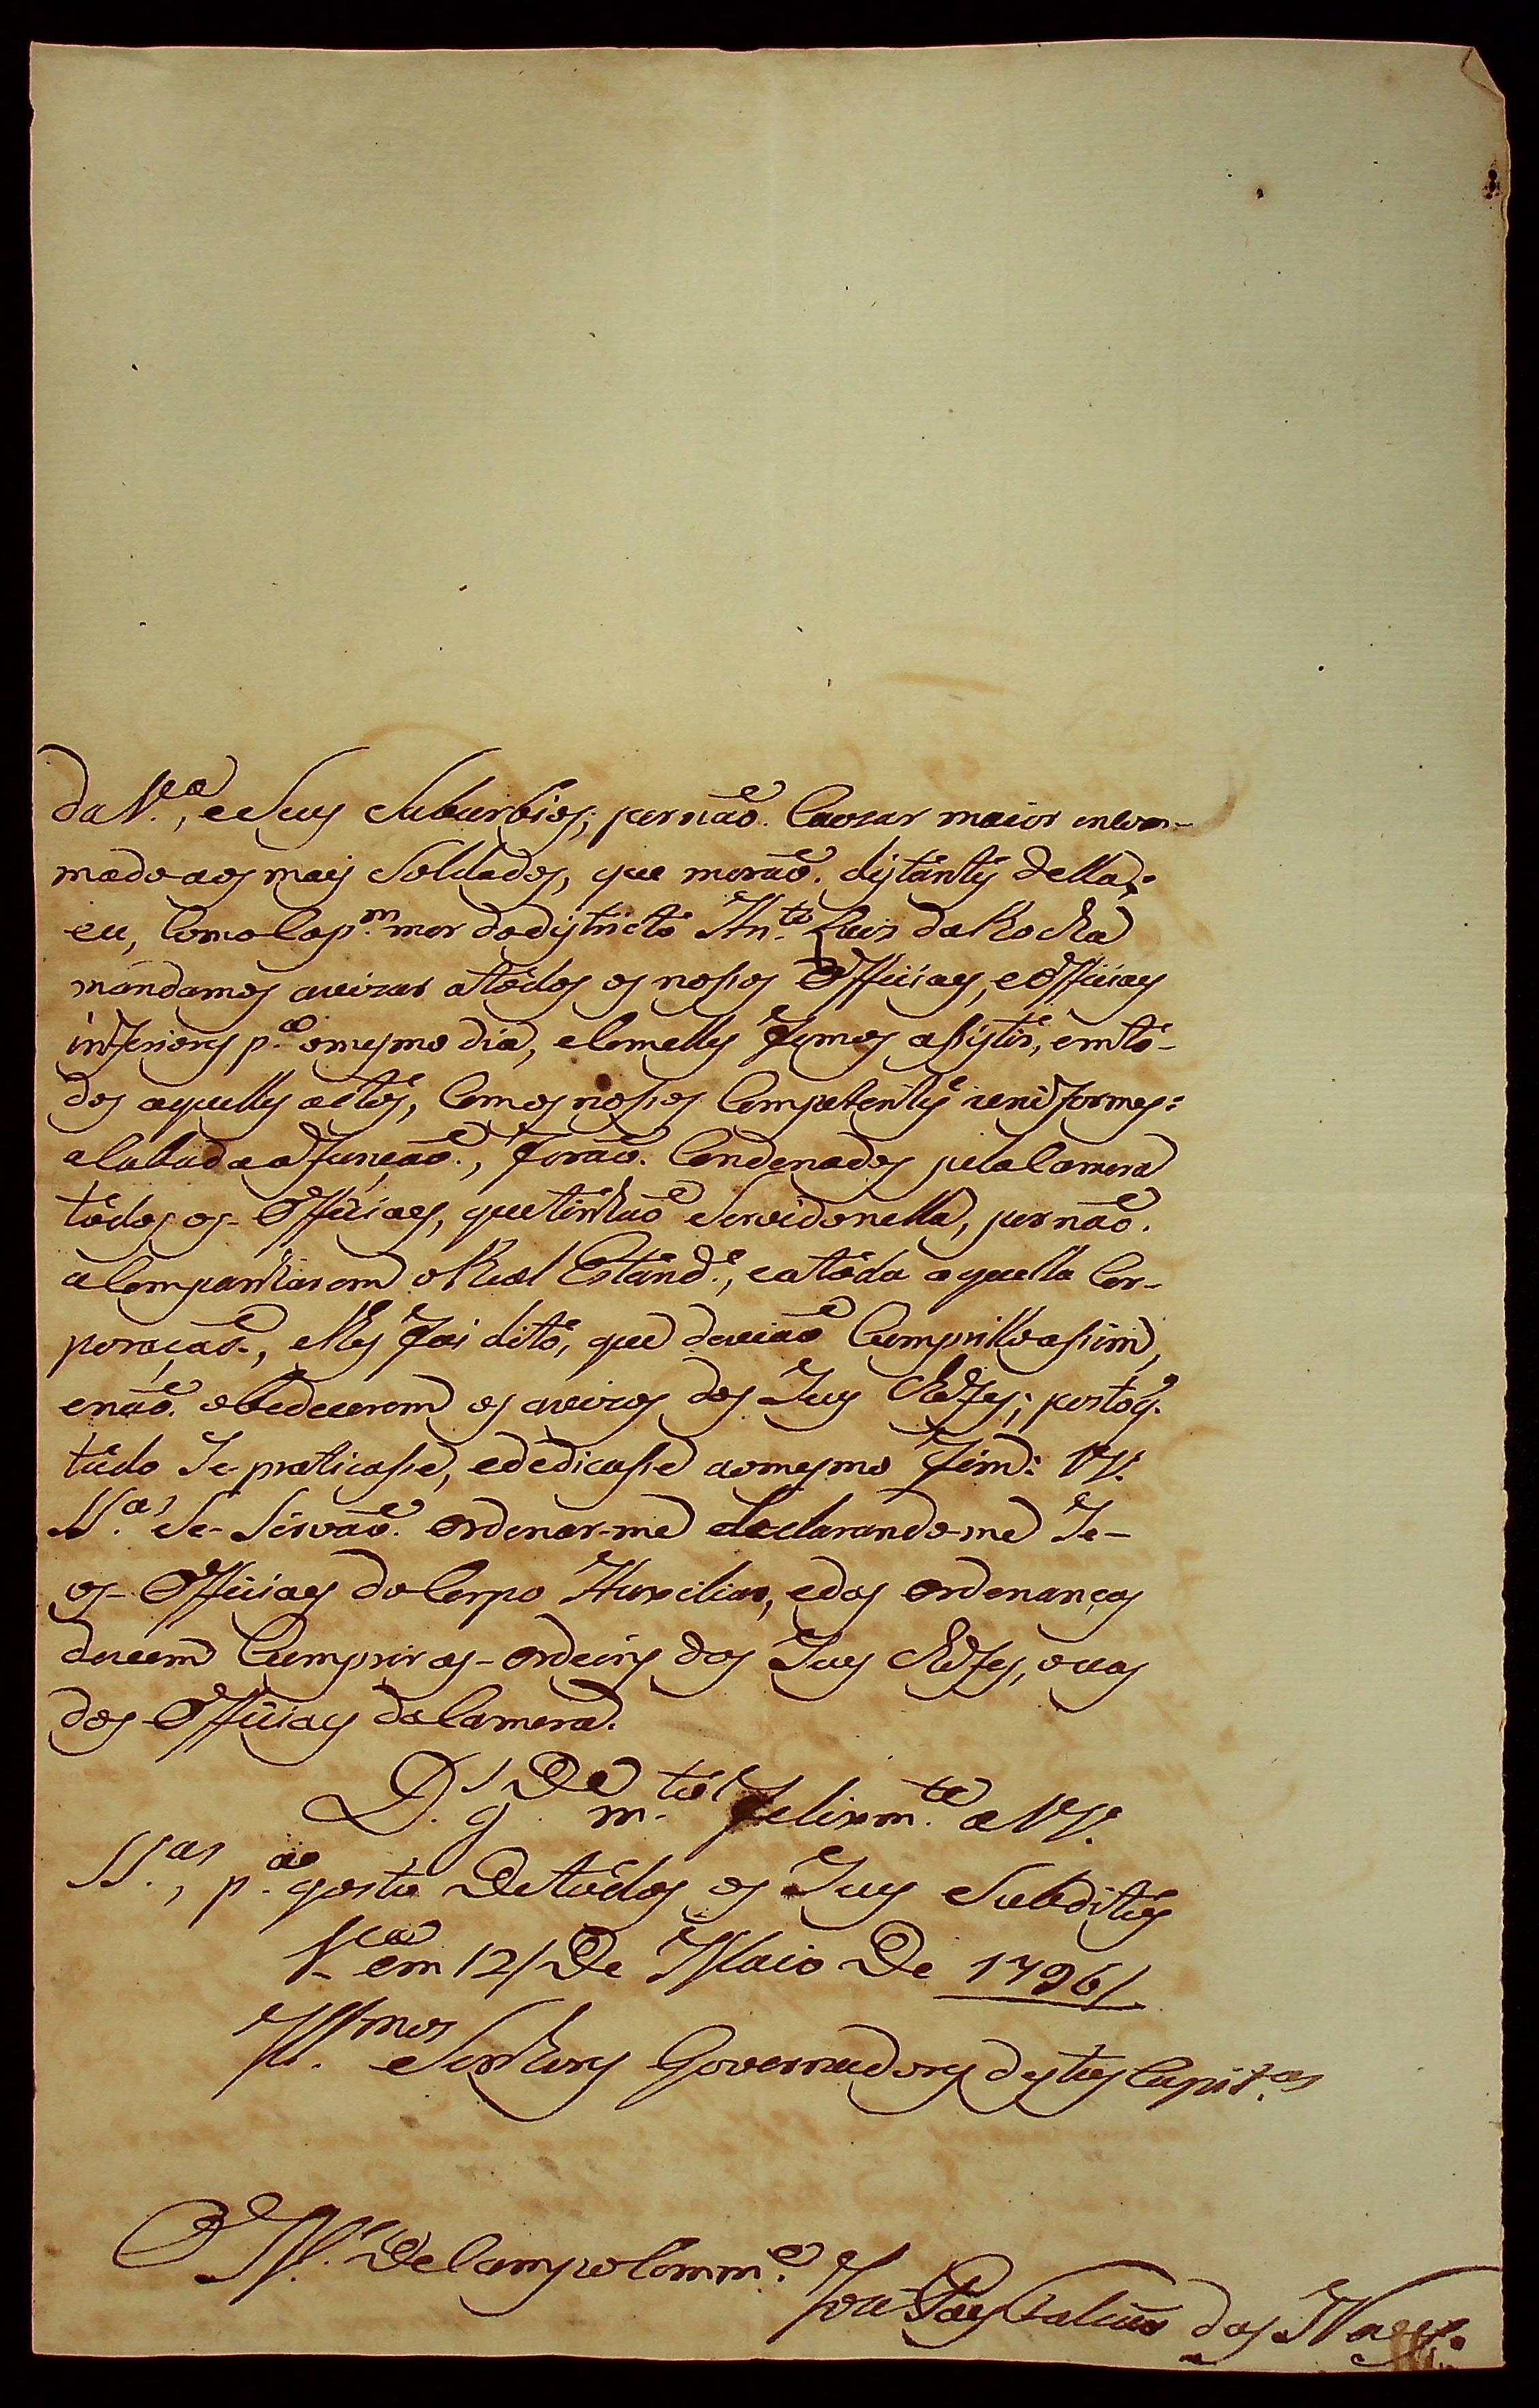 da V.ª, e Seus Suburbios; por não Cauzar maior incom-
modo aos mais Soldados, que morão distantes della:
eu, Como Cap.m mor do districto An.to Luis da Rocha
mandamos avizar a tôdos os nossos Officiaes, e Officiaes
inferiores p.ª o mesmo dia, e Com elles fomos assistir, em tô-
dos aquelles actos, Com os nossos Competentes uniformes:
acabada a função, forão Condenados pela Camera
tôdos os Officiaes, que tinhão Servido nella, por não
acompanharem o Real Estand.e, e a tôda aquella Cor-
poração, e lhes foi dito, que devião Cumprillo assim,
e não obedecerem os avizos dos Seus Chefes; posto q.
tudo Se praticasse, e dedicasse ao mesmo fim: VV.
SS.as Se Sirvão ordenar-me declarando-me Se
os Officiaes do Corpo Auxiliar, e das ordenanças
devem Cumprir as ordeins dos Seus Chefes, ou as
dos Officiaes da Camera.
D.s g.de m.tos felizm.te a VV.
SS.as, p.ª gosto De tôdos os Seus Subditos
V.ª em 12 De Maio De 1796
Ill.mos Senhores Governadores destas Capit.as
O M.e De Campo Comm.e
das Neves.